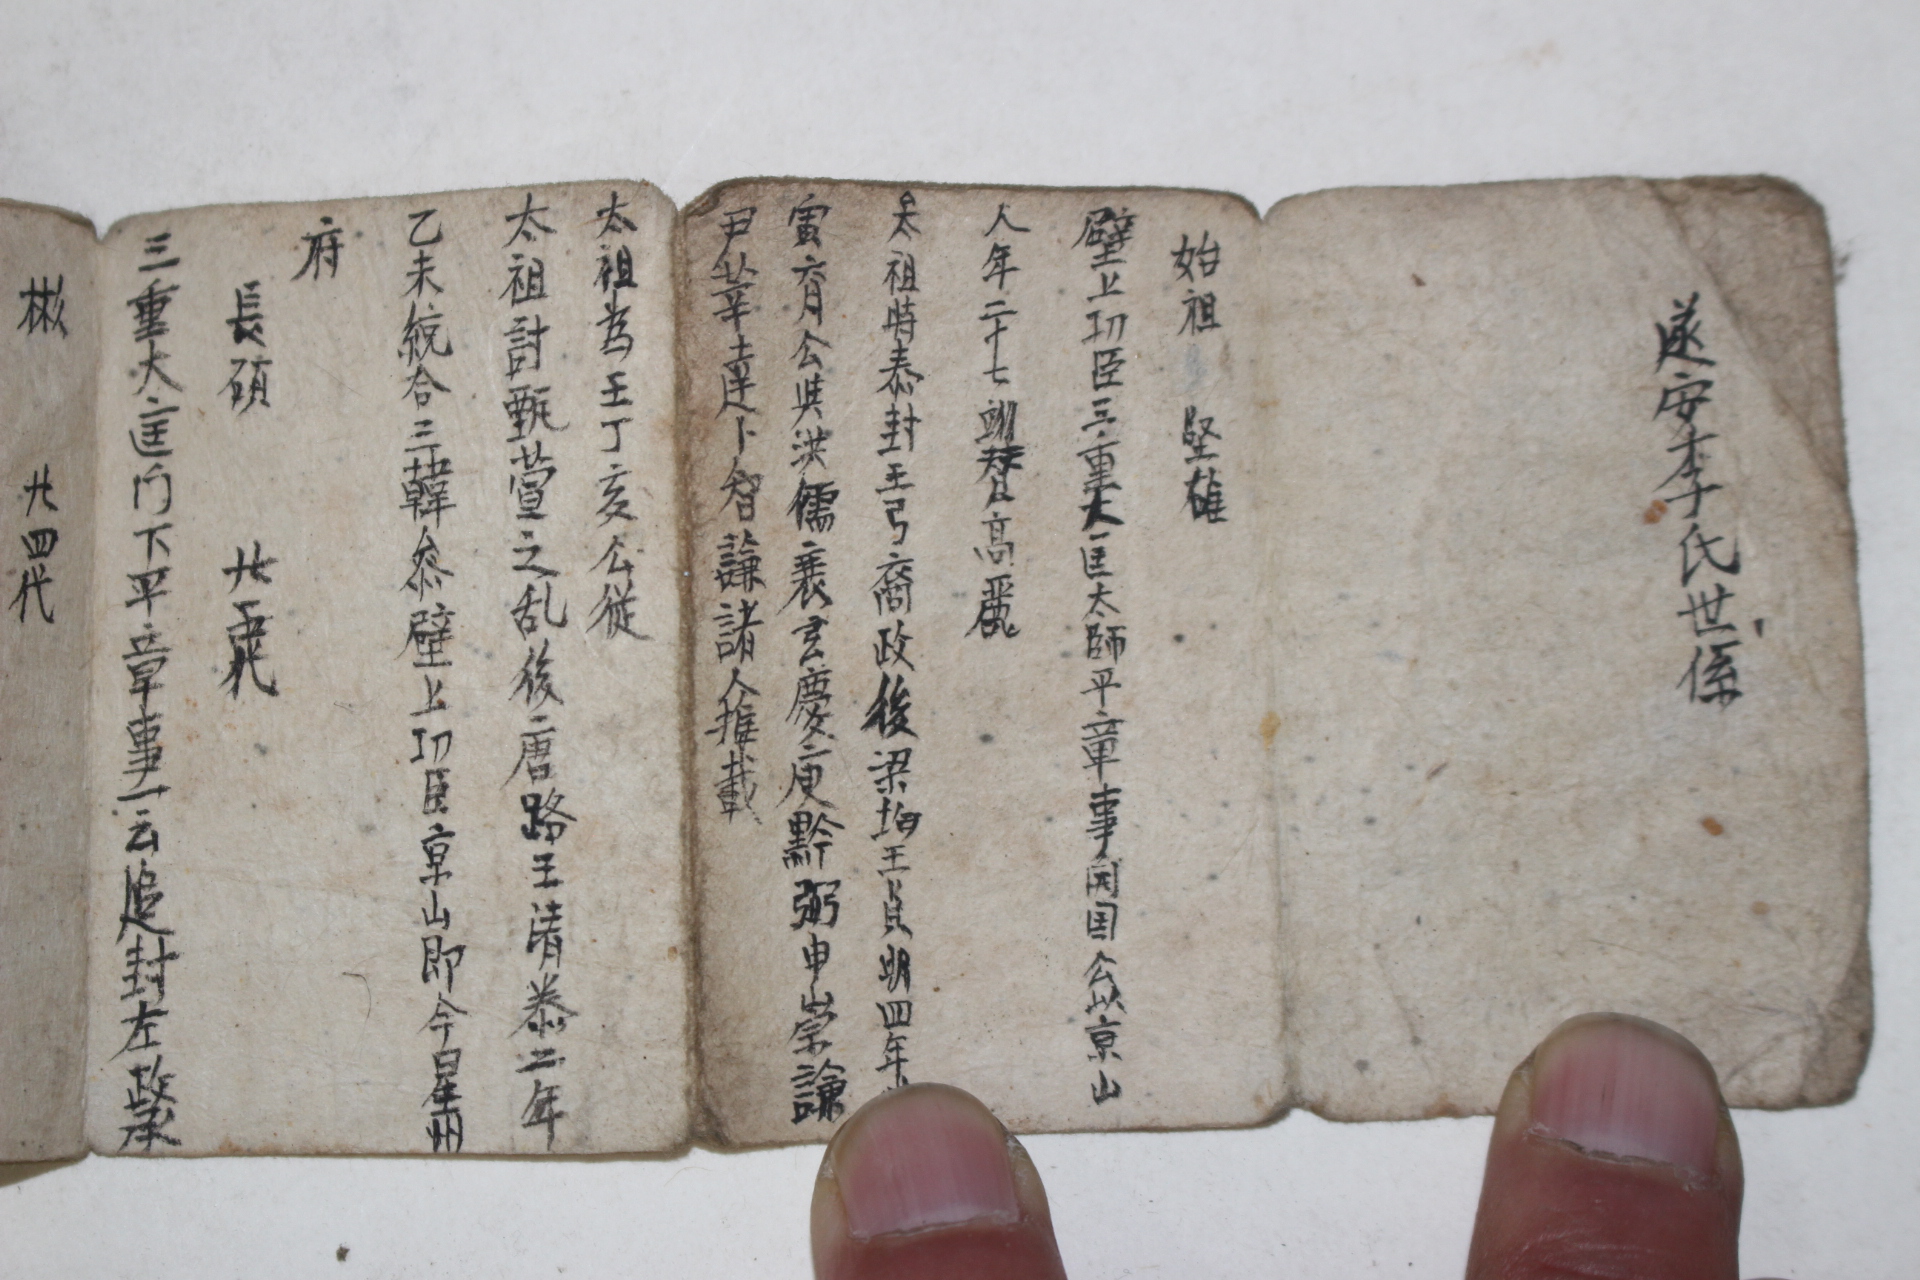 遂安李氏世係
始祖 堅雄
壁上功臣三重大匡太師平章事開国公以京山
人年二十七翊賛高麗
太祖時泰封王弓裔政後梁均王貞明四年
寅六月公與洪儒裵玄慶庾黔弼申崇謙
尹莘達卜智謙諸人推載
太祖為王丁亥公從
太祖討甄萱之乱後唐路王淸泰二年
乙未統合三韓叅壁上功臣京山即今星州
府
長碩 廿五代
三重大匡门下平章事一云追封左政丞
彬 廿四代